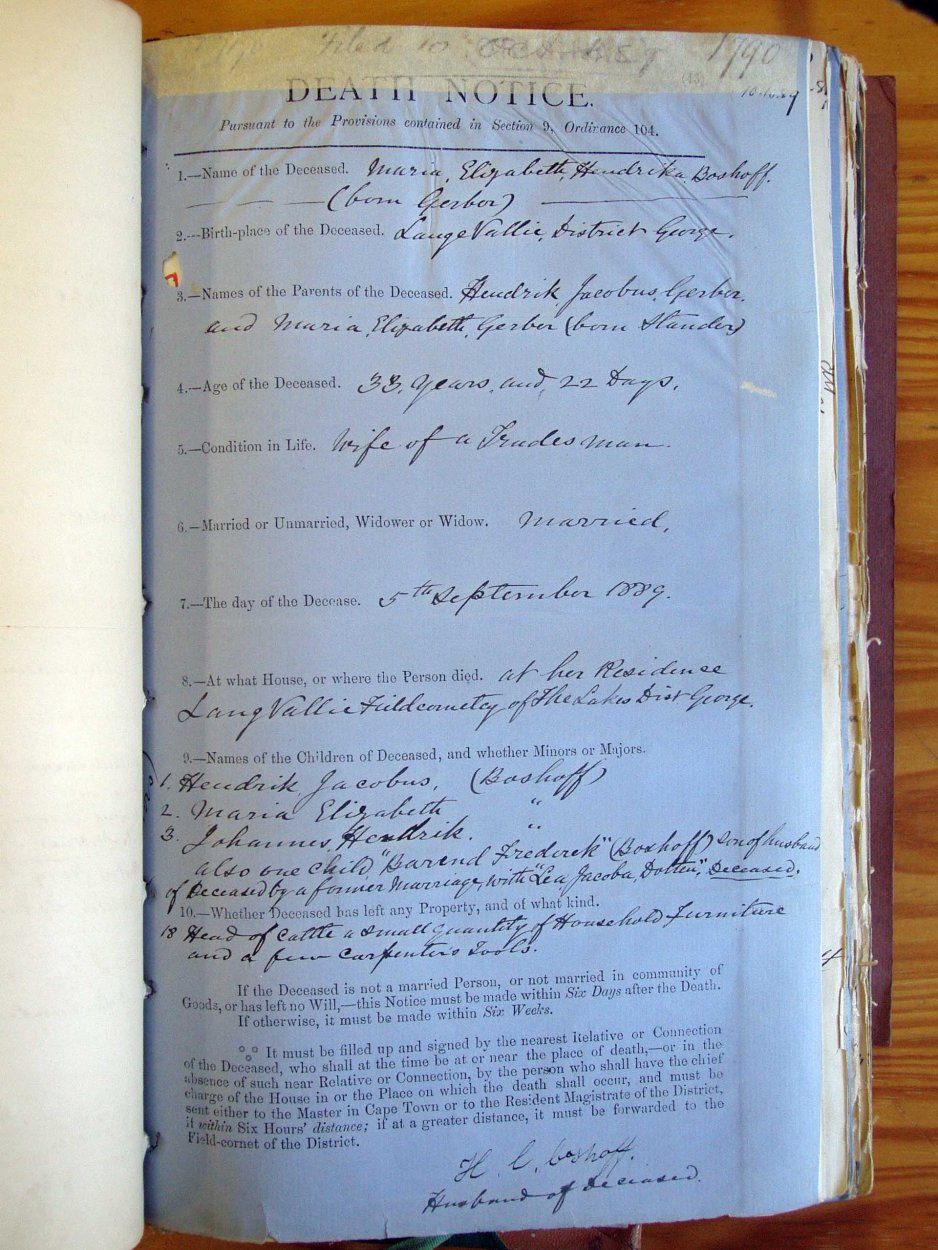 Filed 10 1790
(43)
DEATH NOTICE.
Pursuant to the Provisions contained in Section 9, Ordinance 104.
1.—Name of the Deceased. Maria, Elizabeth, Hendrika Boshoff.
(born Gerber)
2.—Birth-place of the Deceased. Lange Vallie, District George.
3.—Names of the Parents of the Deceased. Hendrik, Jacobus, Gerber,
and Maria Elizabeth, Gerber (born Stander)
4.—Age of the Deceased. 33, years, and, 22 Days.
5.—Condition in Life. Wife of a Tradesman
6.—Married or Unmarried, Widower or Widow. Married,
7.—The day of the Decease. 5th September 1889.
8.—At what House, or where the Person died. at her Residence
Lang Vallie Fieldcornetcy of The Lakes Dist George.
9.—Names of the Children of Deceased, and whether Minors or Majors.
1. Hendrik, Jacobus, (Boshoff)
2. Maria Elizabeth "
3. Johannes, Hendrik. "
also one child, "Barend Frederek" (Boshoff) son of husband
of Deceased by a former Marriage, with "Lea Jacoba, ," Deceased.
10.—Whether Deceased has left any Property, and of what kind.
18 Head of Cattle a small quantity of Household Furniture
and a few Carpenter's Tools.
If the Deceased is not a married Person, or not married in community of
Goods, or has left no Will,—this Notice must be made within Six Days after the Death.
If otherwise, it must be made within Six Weeks.
It must be filled up and signed by the nearest Relative or Connection
of the Deceased, who shall at the time be at or near the place of death,—or in the
absence of such near Relative or Connection, by the person who shall have the chief
charge of the House in or the Place on which the death shall occur, and must be
sent either to the Master in Cape Town or to the Resident Magistrate of the District,
if within Six Hours' distance; if at a greater distance, it must be forwarded to the
Field-cornet of the District.
H. C. Boshoff.
Husband of Deceased.